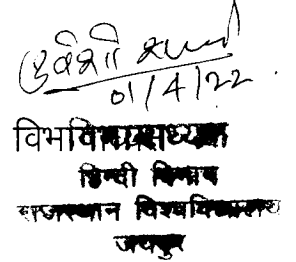 उर्वशी शर्मा
01/4/22.
विभागाध्यक्ष
हिन्दी विभाग
राजस्थान विश्वविद्यालय
जयपुर